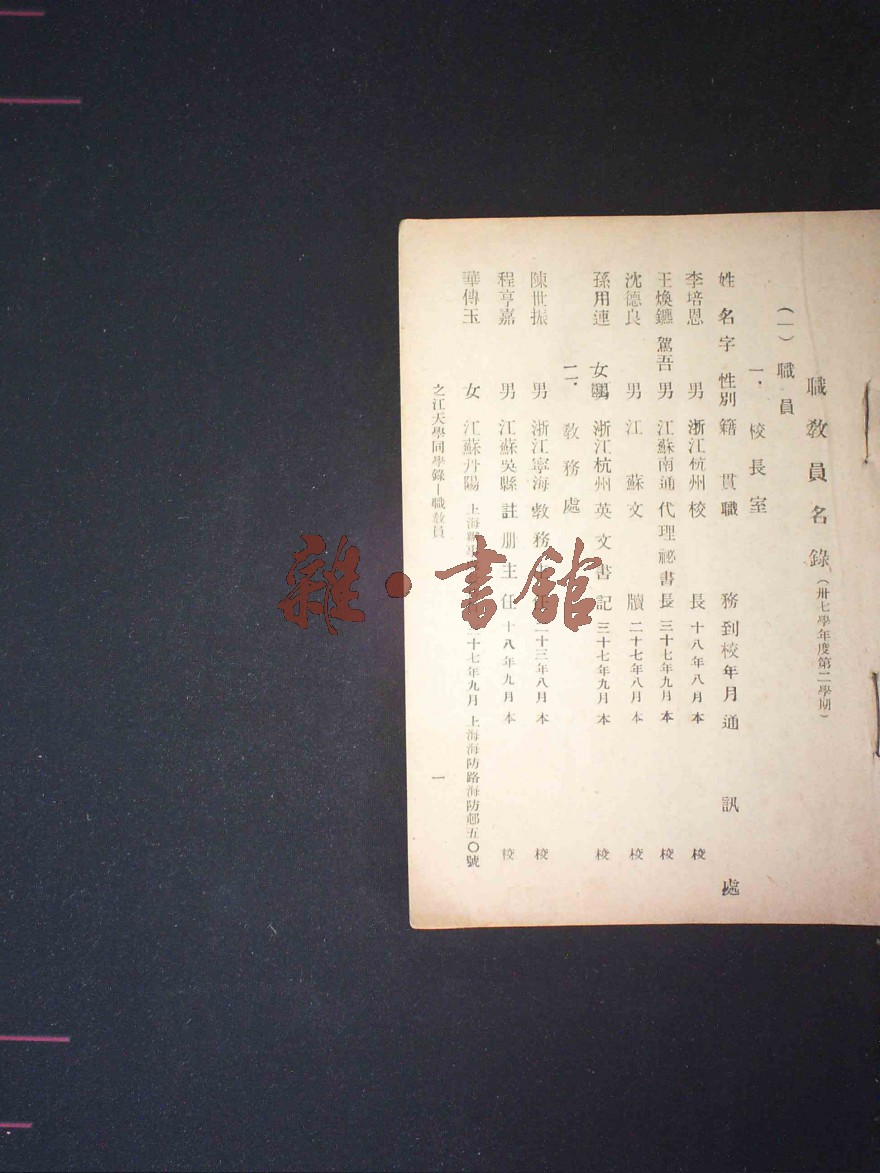 職教員名錄（卅七學年度第二學期）
（一）職員
一．校長室
姓名 字 性別 籍貫 職務 到校年月 通訊處
李培恩 男 浙江杭州 校長 十八年八月 本校
王煥鑣 駕吾 男 江蘇南通 代理祕書長 三十七年九月 本校
沈德良 男 江蘇 文牘 二十七年八月 本校
孫用連 女 浙江杭州 英文書記 三十七年九月 本校
二．教務處
陳世振 男 浙江寧海 教務主任 二十三年八月 本校
程亨嘉 男 江蘇吳縣 註册主任 十八年九月 本校
華傳玉 女 江蘇丹陽 上海 十七年九月 上海海防路海防邨五〇號
之江大學同學錄—職敎員
一
雜·書館